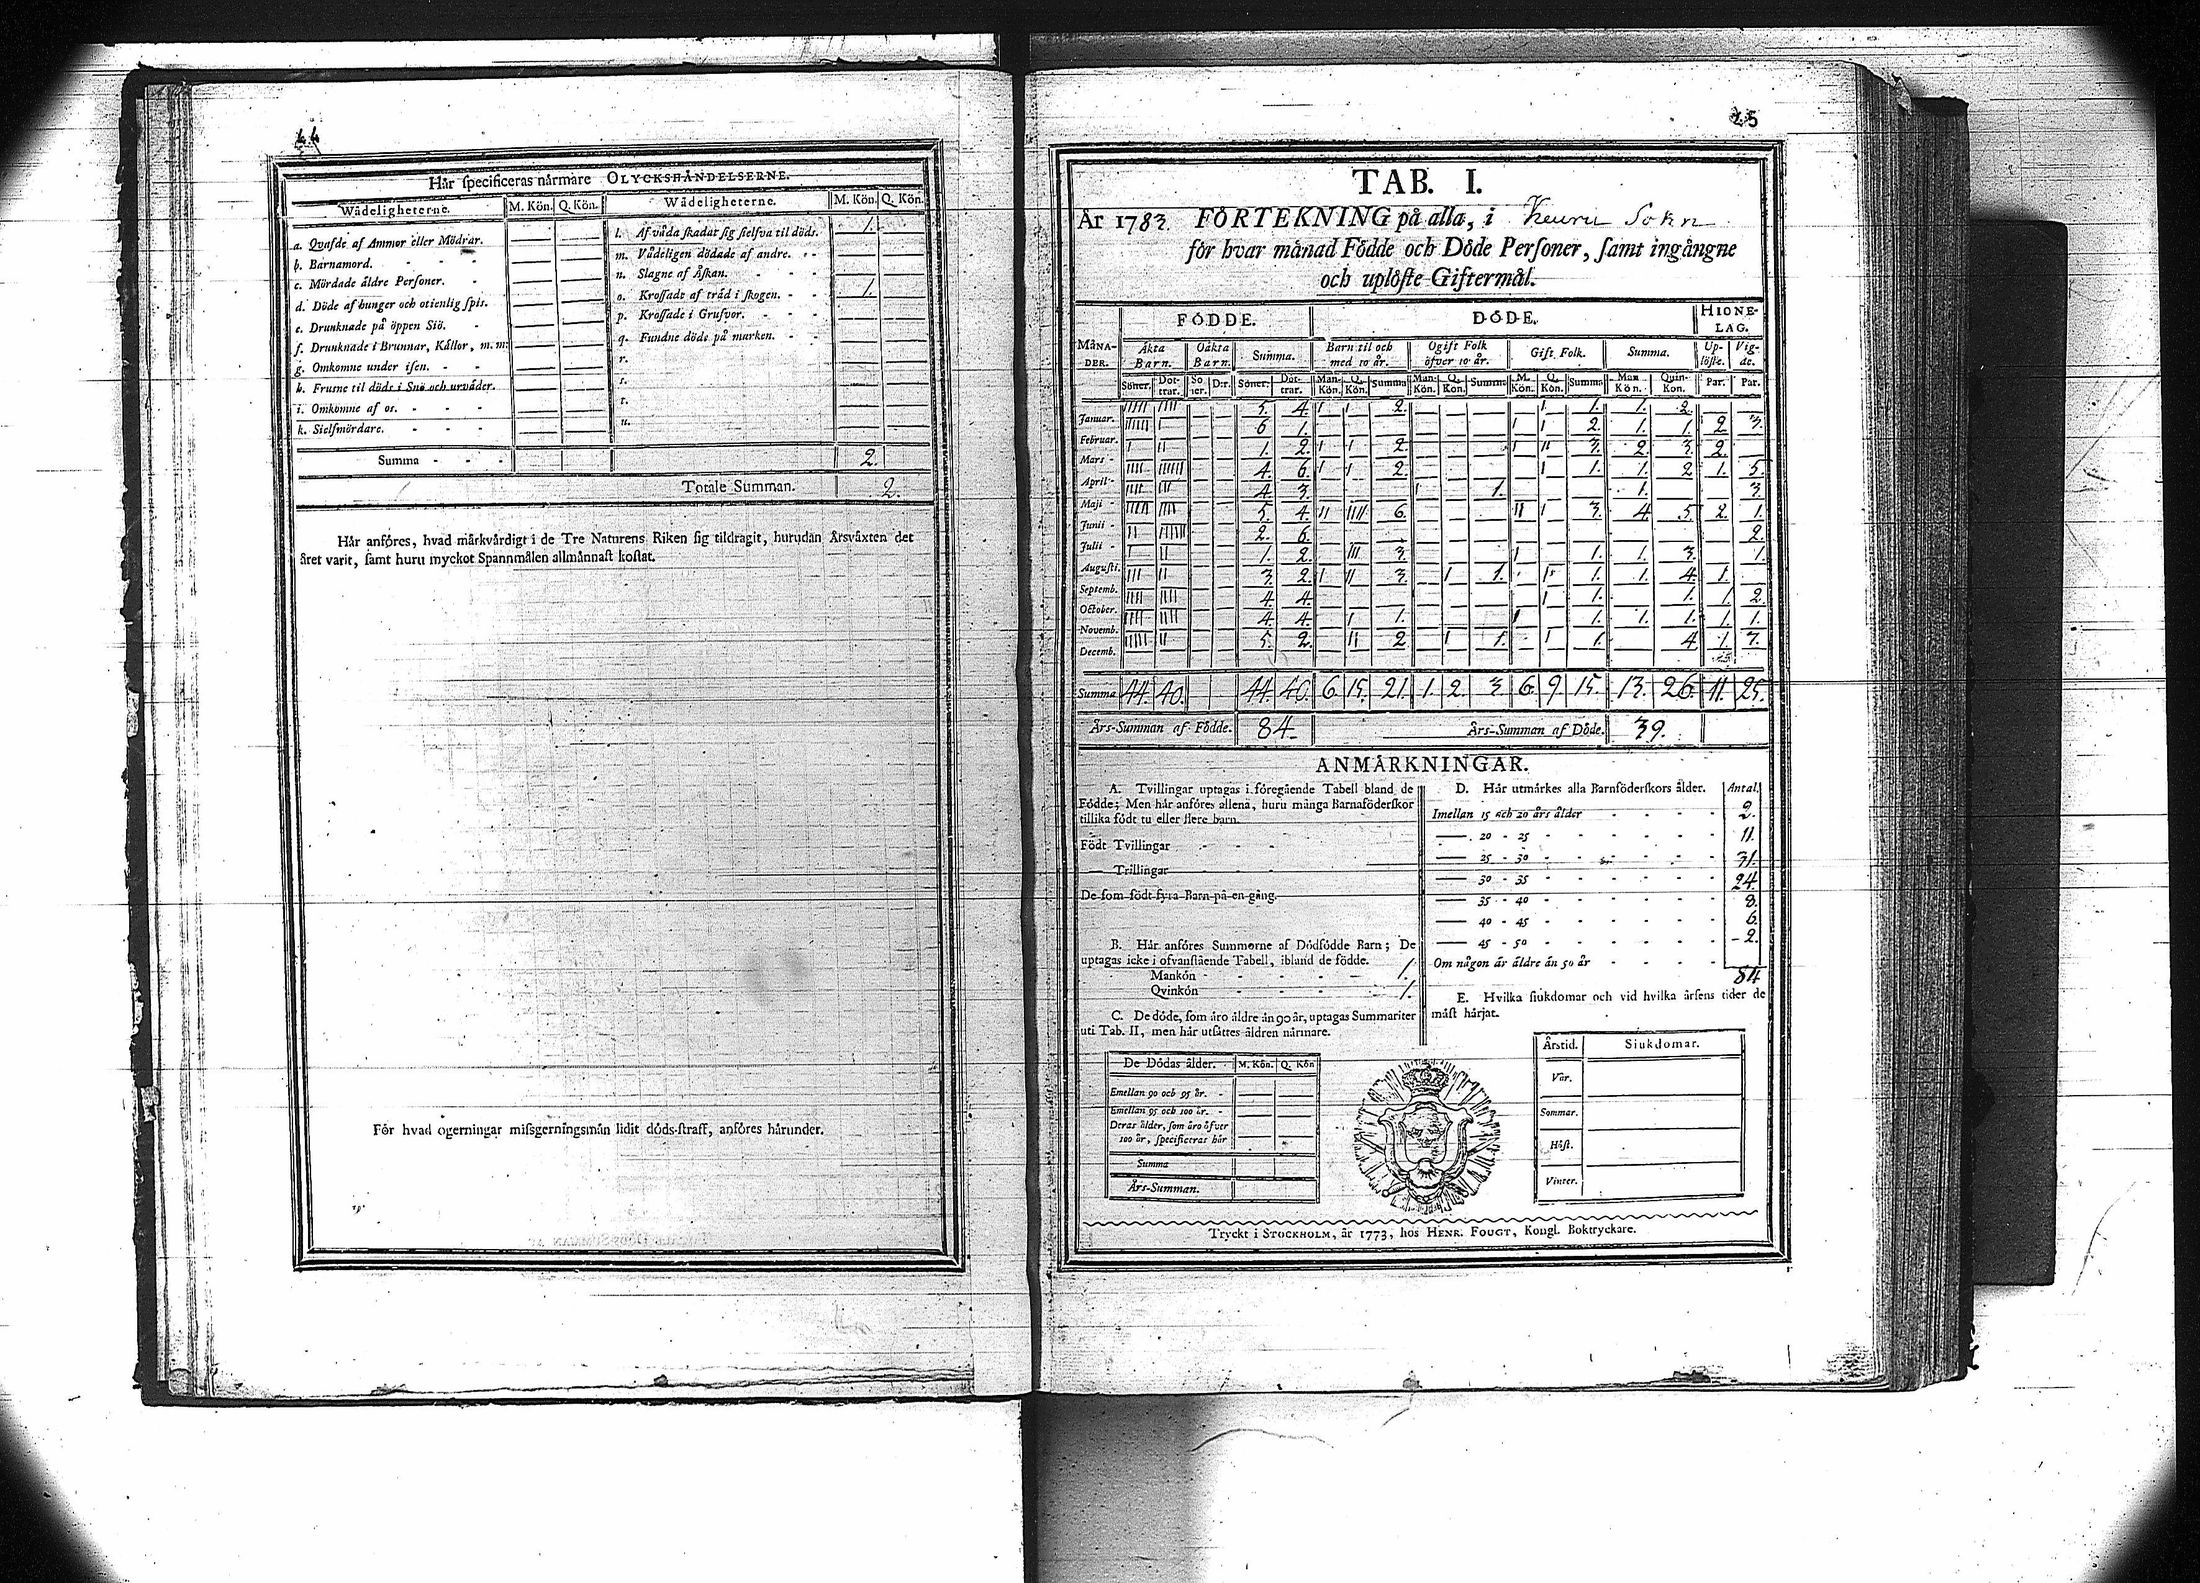 44
Hår ſpecificeras nårmare OLYCKSHÅNDELSERNE.
Wådeligheterne. M. Kön. Q. Kön. Wådeligheterne. M. Kön. Q. Kön.
a. Qvafde af Ammor eller Mödrar. — —
b. Barnamord. — —
c. Mördade åldre Perſoner. — —
d. Döde af hunger och otienlig ſpis. — —
e. Drunknade på öppen Siö. — —
f. Drunknade i Brunnar, Kållor, m. m: — —
g. Omkomne under iſen. — —
h. Fruſne til döds i Snö och urvåder. — —
i. Omkomne af os. — —
k. Sielfmördare. — —
l. Af våda ſkadat ſig ſielfva til döds. 1. —
m. Vådeligen dödade af andre. — —
n. Slagne af Åſkan. — —
o. Kroſſade af tråd i ſkogen. 1. —
p. Kroſſade i Grufvor. — —
q. Fundne döde på marken. — —
r.
s.
t.
u.
Summa - - - 2.
Totale Summan. 2.
Hår anföres, hvad mårkvårdigt i de Tre Naturens Riken ſig tildragit, hurudan Årsvåxten det
året varit, ſamt huru myckot Spannmålen allmånnaſt koſtat.
För hvad ogerningar miſsgerningsmån lidit döds-ſtraff, anföres hårunder.
45
TAB. I.
År 1783. FÖRTEKNING på alla, i Keuru Sokn
för hvar månad Födde och Döde Perſoner, ſamt ingångne
och uplöſte Giftermål.
MÅNA-DER. FÖDDE. DÖDE. HIONE-LAG.
Åkta Barn. Oåkta Barn. Summa. Barn til och med 10 år. Ogift Folk öfver 10 år. Gift Folk. Summa. Up-löſte. Vig-de.
Söner. Döt-trar. Sö ner. D:r. Söner. Döt-trar. Man-Kön. Q. Kön. Summa Man-Kön. Q. Kon. Summa M. Kön. Q. Kön. Summa Man Kön. Quin-Kon. Par. Par.
Januar. IIIII IIII — — 5. 4. I I 2. — — — — I 1. 1. 2. — —
Februar. IIIIII I — — 6 1. — — — — — — I I 2. 1. 1. 2. 3.
Mars - I II — — 1. 2. I I 2. — — — I II 3. 2. 3. 2. —
April - IIII IIIIII — — 4. 6. I I 2. — — — — I 1. 1. 2 1. 5.
Maji - IIII III — — 4. 3. — — — I — 1. — — — 1. — — 3.
Junii - IIIII IIII — — 5. 4. II IIII 6. — — — II I 3. 4. 5. 2. 1.
Julii - II IIIIII — — 2. 6. — — — — — — — — — — — — 2.
Auguſti. I II — — 1. 2. — III 3. — — — I — 1. 1. 3. — 1.
Septemb. III II — — 3. 2. I II 3. — I 1. — I 1. 1. 4. 1. —
October. IIII IIII — — 4. 4. — — — — — — — I 1. — 1. 1. 2.
Novemb. IIII IIII — — 4. 4. — I 1. — — — I — 1. 1. 1. 1. 1.
Decemb. IIIII II — — 5. 2. — II 2 — I 1. — I 1. — 4 1. 7.
Summa 44. 40. 44. 40. 6. 15. 21. 1. 2. 3. 6. 9. 15. 13. 26. 11. 25.
Års-Summan af Födde. 84. Års-Summan af Döde. 39.
ANMÅRKNINGAR.
A. Tvillingar uptagas i föregående Tabell bland de
Födde; Men hår anföres allena, huru många Barnaföderſkor
tillika födt tu eller flere barn.
Födt Tvillingar - - -
— Trillingar - - -
De ſom födt fyra Barn på en gång.
B. Hår anföres Summorne af Dödfödde Barn; De
uptagas icke i ofvanſtående Tabell, ibland de födde.
Mankön - - - - 1.
Qvinkön - - - - 1.
C. De döde, ſom åro åldre ån 90 år, uptagas Summariter
uti Tab. II, men hår utſåttes åldren nårmare.
De Dödas ålder. M. Kön. Q. Kön
Emellan 90 och 95 år. - — —
Emellan 95 och 100 år. - — —
Deras ålder, ſom åro öfver
100 år, ſpecificeras hår — —
Summa
Års-Summan.
D. Hår utmårkes alla Barnföderſkors ålder. Antal.
Imellan 15 och 20 års ålder 2.
— 20 - 25 11.
— 25 - 30 31.
— 30 - 35 24.
— 35 - 40 8.
— 40 - 45 6.
— 45 - 50 2.
Om någon år åldre ån 50 år
84
E. Hvilka ſiukdomar och vid hvilka årſens tider de
måſt hårjat.
Årstid. Siukdomar.
Vår.
Sommar.
Höſt.
Vinter.
Tryckt i STOCKHOLM, år 1773, hos HENR. FOUGT, Kongl. Boktryckare.